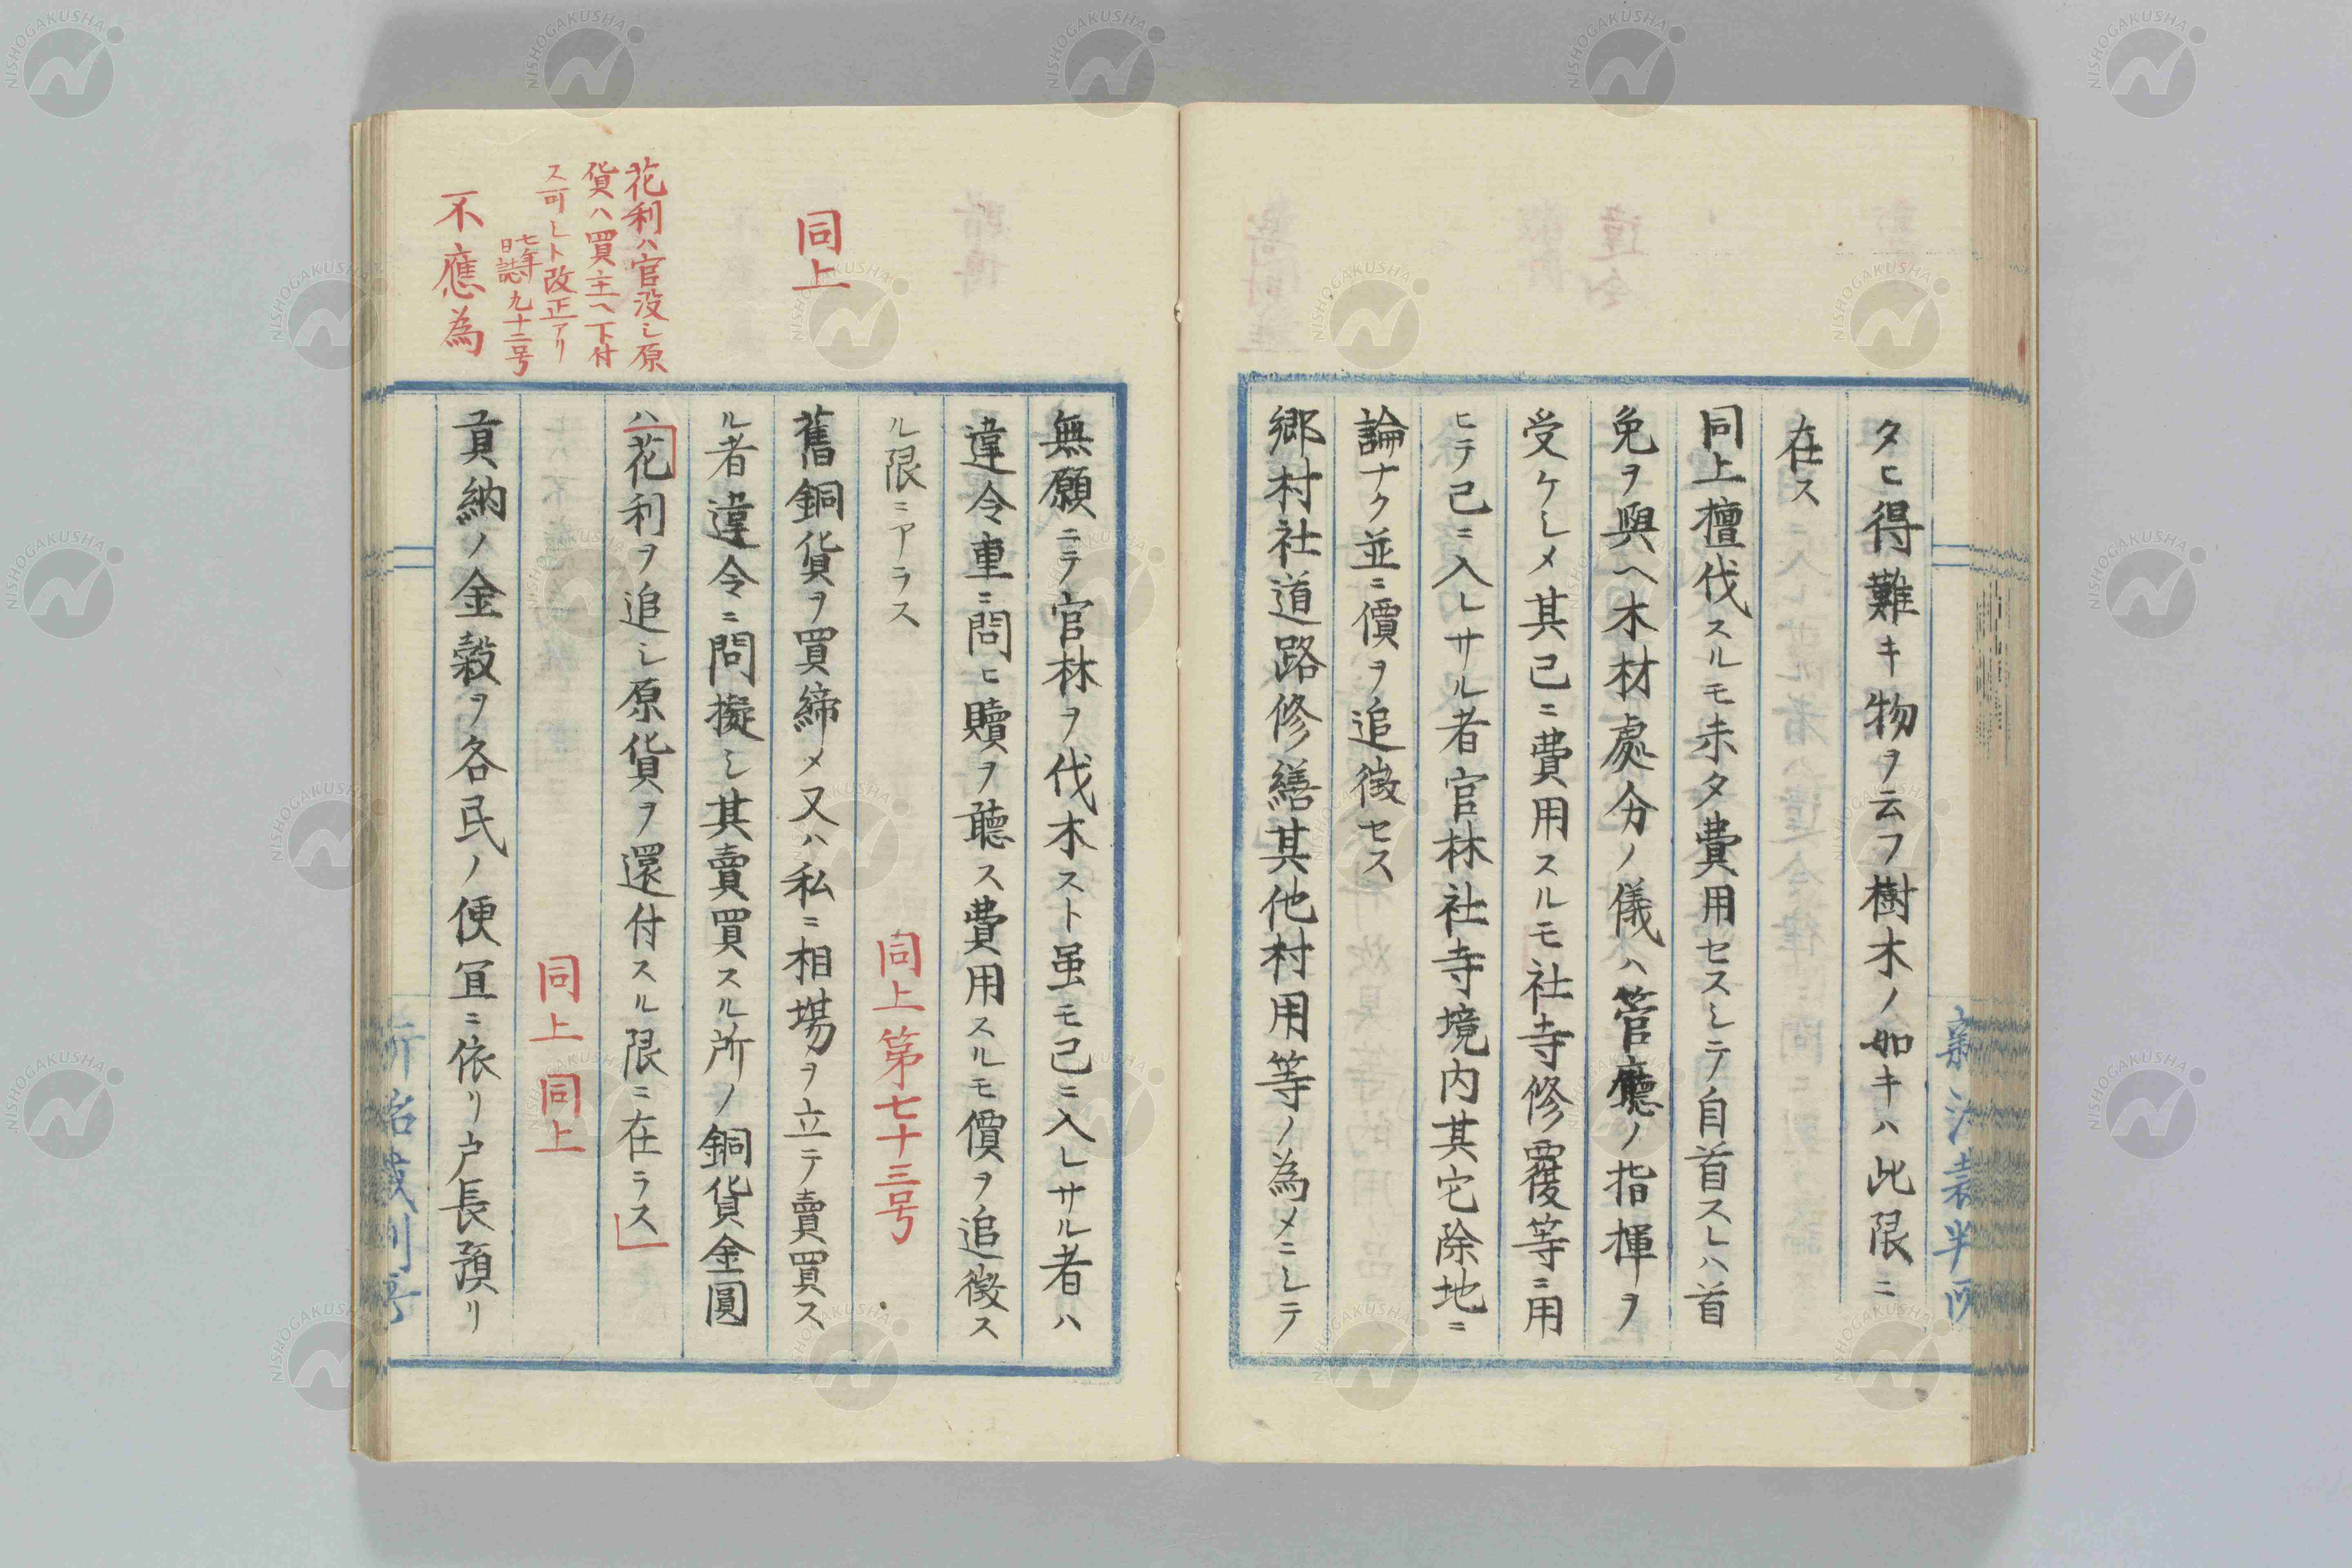 タヒ得難キ物ヲ云フ樹木ノ如キハ此限ニ
在ス
同上檀伐スルモ未タ費用セスシテ自首スレハ首
免ヲ與ヘ木材處分ノ儀ハ管廳ノ指揮ヲ
受ケシメ其已ニ費用スルモ社寺修覆等ニ用
ヒテ己ニ入レサル者官林社寺境内其它除地ニ
論ナク並ニ價ヲ追徴セス
郷村社道路修繕其他村用等ノ為メニシテ
無願ニテ官林ヲ伐木スト虽モ己ニ入レサル者ハ
違令重ニ問ヒ贖ヲ聴ス費用スルモ價ヲ追徴ス
ル限ニアラス
同上第七十三号
同上
舊銅貨ヲ買締メ又ハ私ニ相場ヲ立テ賣買ス
ル者違令ニ問擬シ其賣買スル所ノ銅貨金圓
ハ花利ヲ追シ原貨ヲ還付スル限ニ在ラス
花利ハ官没シ原
貨ハ買主ヘ下付
ス可シト改正アリ
七年
日誌九十二号
同上同上
不應為
貢納ノ金穀ヲ各民ノ便冝ニ依リ戸長預リ
NISHOGAKUSHA